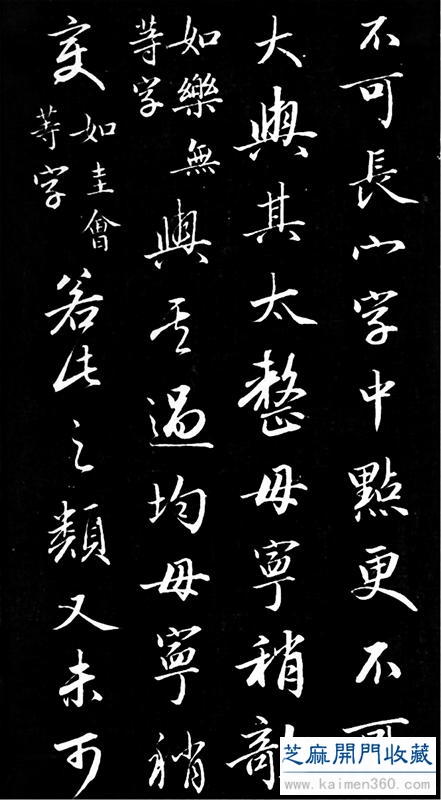 不可長宀字中點更不可
大與其太整毋寧稍敧
如樂無
等字
與其過均毋寧稍
变
如圭會
等字
若此之類又未可
芝麻開門收藏
www.kaimen360.com